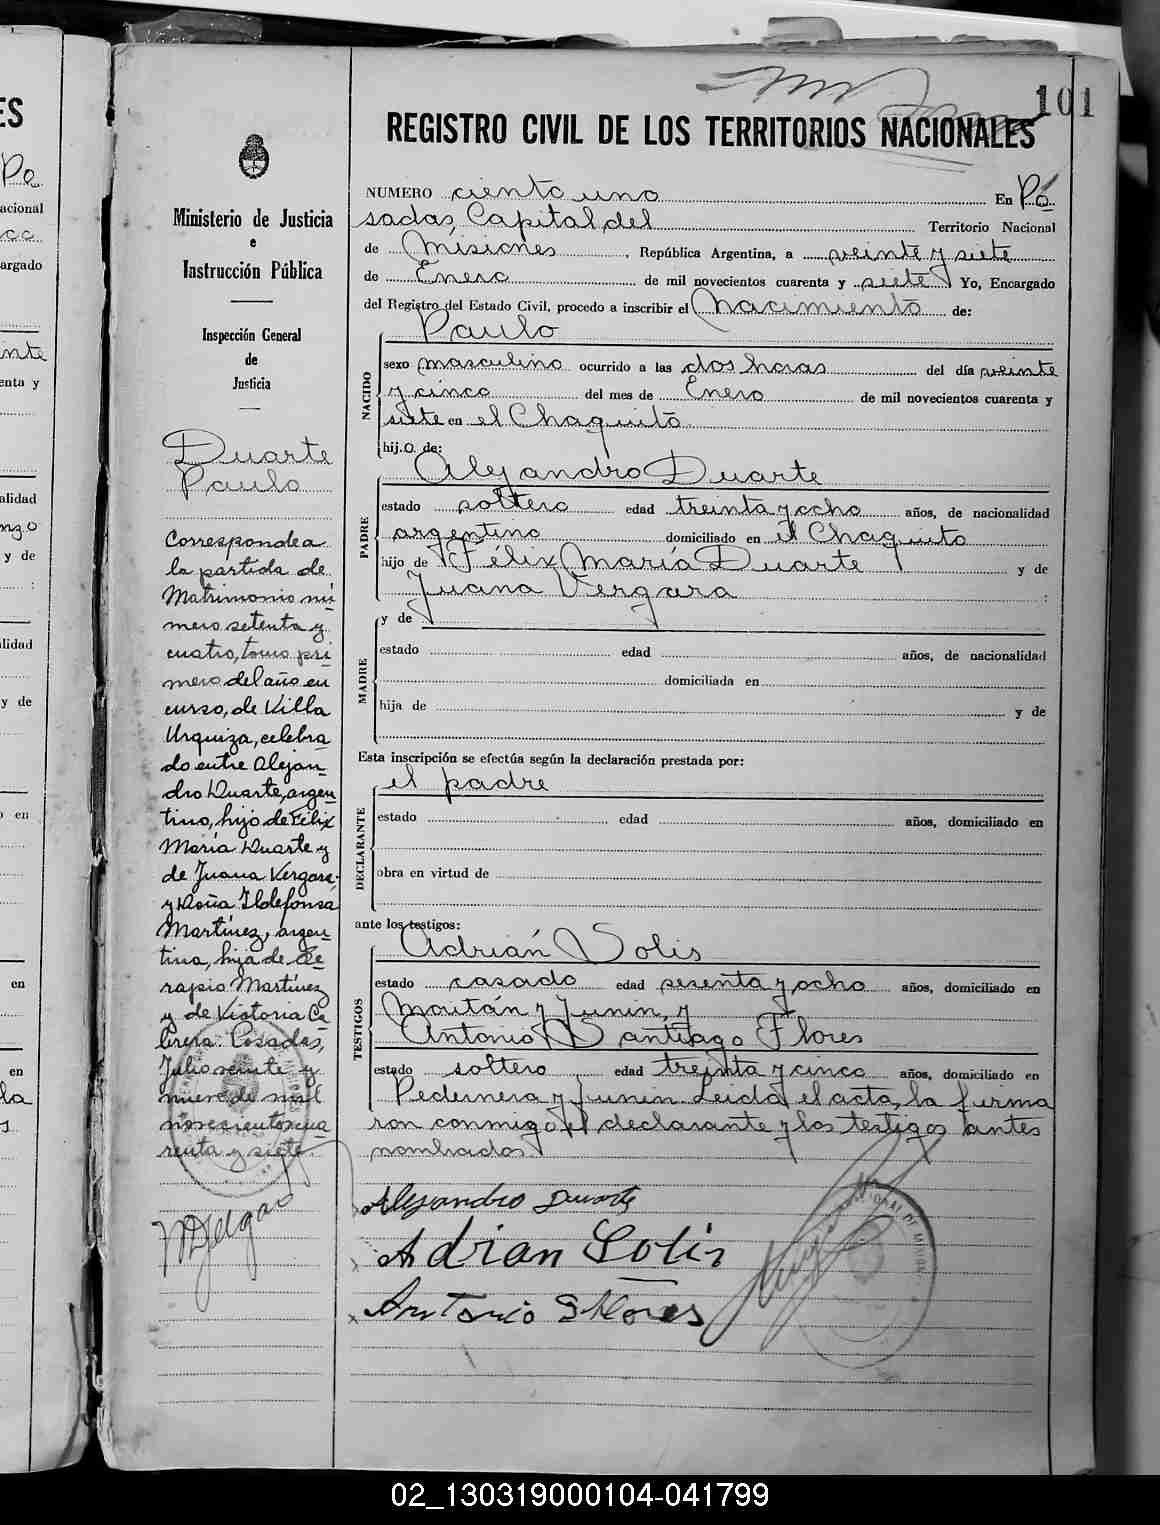 101
REGISTRO CIVIL DE LOS TERRITORIOS NACIONALES
Ministerio de Justicia
e
Instrucción Pública
Inspección General
de
Justicia
Duarte
Paulo
Corresponde a
la partida de
Matrimonio nú
mero setenta y
cuatro, tomo pri
mero del año en
curso, de Villa
Urquiza, celebra
do entre Alejan
dro Duarte, argen
tino, hijo de Félix
María Duarte y
de Juana Vergara
y Doña Ildefonsa
Martínez, argen
tina, hija de Se
rapio Martínez
y de Victoria Ca
brera. Posadas,
Julio veinte y
nueve de mil
novecientos cua
renta y siete.
NUMERO ciento uno En Po
sadas, Capital del Territorio Nacional
de Misiones, República Argentina, a veinte y siete
de Enero de mil novecientos cuarenta y siete Yo, Encargado
del Registro del Estado Civil, procedo a inscribir el Nacimiento de:
Paulo
NACIDO
sexo masculino ocurrido a las dos horas del día veinte
y cinco del mes de Enero de mil novecientos cuarenta y
siete en el Chaquito
hijo de:
Alejandro Duarte
PADRE
estado soltero edad treinta y ocho años, de nacionalidad
argentino domiciliado en el Chaquito
hijo de Félix María Duarte y de
Juana Vergara
MADRE
y de
estado edad años, de nacionalidad
domiciliada en
hija de y de
Esta inscripción se efectúa según la declaración prestada por:
el padre
DECLARANTE
estado edad años, domiciliado en
obra en virtud de
ante los testigos:
Adrián Solis
TESTIGOS
estado casado edad sesenta y ocho años, domiciliado en
Moritán y Junin, y
Antonio Santiago Flores
estado soltero edad treinta y cinco años, domiciliado en
Pedernera y Junin. Leida el acta, la firma
ron conmigo el declarante y los testigos antes
nombrados.
Alejandro Duarte
Adrian Solis
Antonio S Flores
02_130319000104-041799